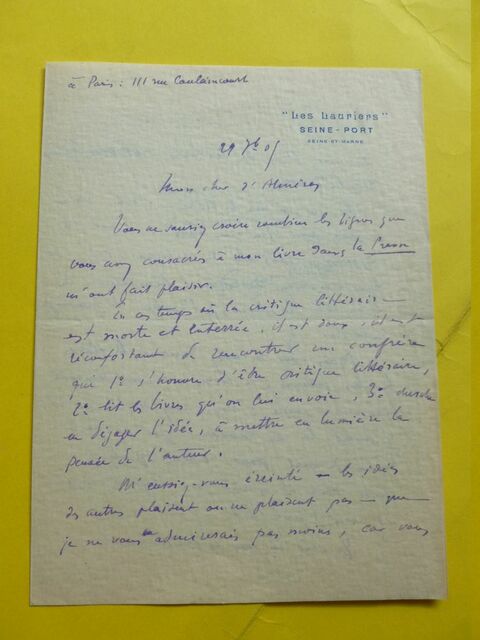 à Paris : 111 rue Caulaincourt
"Les Lauriers"
SEINE-PORT
SEINE-ET-MARNE
29 7bre 05
Mon cher d'Alméras
Vous ne sauriez croire combien les lignes que
vous avez consacrés à mon livre dans la Presse
m'ont fait plaisir.
En ces temps où la critique littéraire
est morte et enterrée, c'est doux, c'est
réconfortant de rencontrer un confrère
qui 1º s'honore d'être critique littéraire,
2º lit les livres qu'on lui envoie, 3º cherche
en dégager l'idée, à mettre en lumière la
pensée de l'auteur.
M'eussiez-vous éreinté – les idées
des autres plaisent ou ne plaisent pas – que
je ne vous admirerais pas moins, car vous